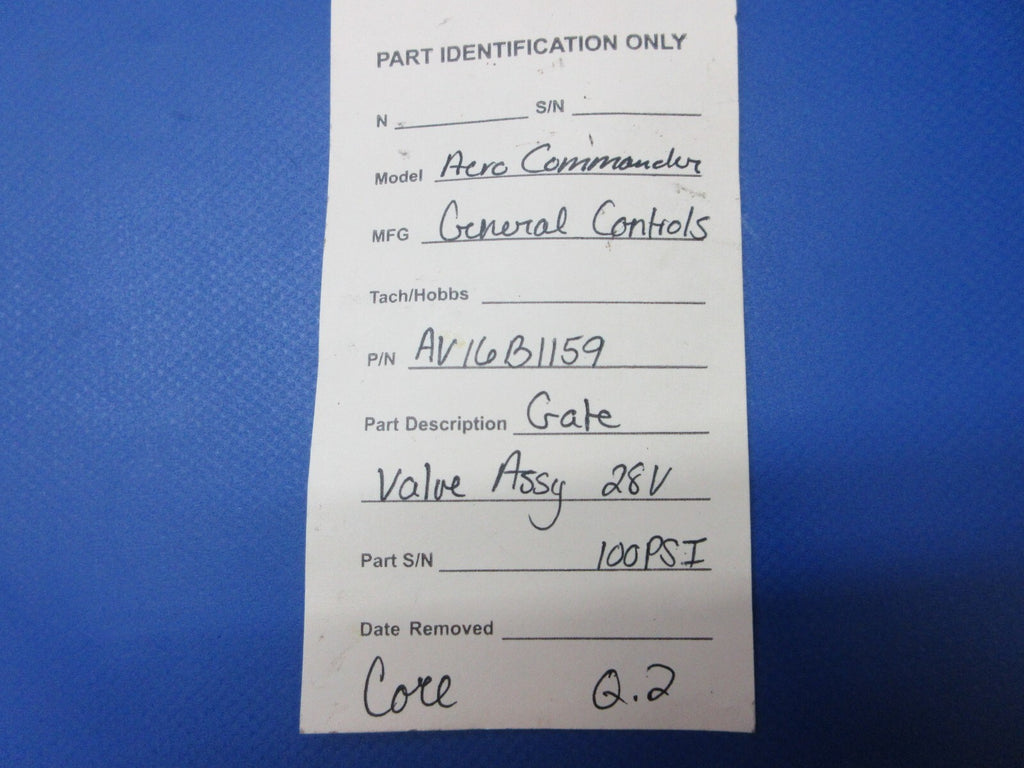 PART IDENTIFICATION ONLY
N S/N
Model Aero Commander
MFG General Controls
Tach/Hobbs
P/N AV16B1159
Part Description Gate
Valve Assy 28V
Part S/N 100PSI
Date Removed
Core Q.2